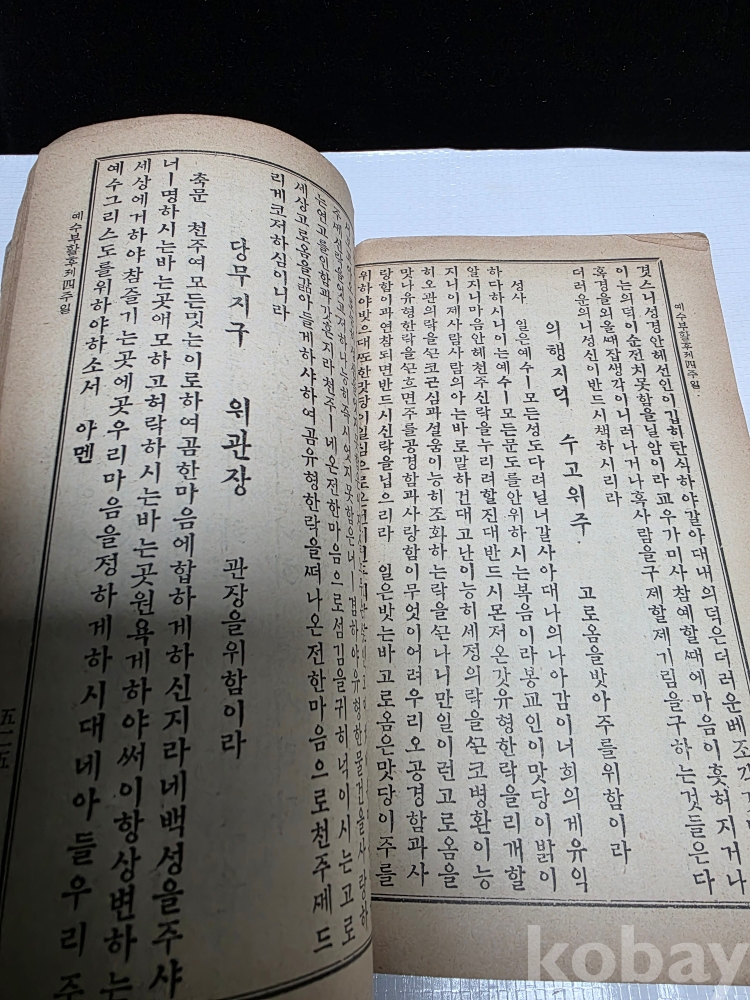 예수부활후제四주일
것스니성경안혜선인이깁히탄식하야갈아대내의덕은더러운베조각
이는의덕이순전치못함을닐암이라교우가미사참예할쌔에마음이흣허지거나
혹경을외울쌔잡생각이니러나거나혹사람을구제할제기림을구하는것들은다
더러운의니성신이반드시책하시리라
의행지덕 수고위주 고로옴을밧아주를위함이라
성사 일은예수ㅣ모든성도다려닐너갈사아대나의나아감이너희의게유익
하다하시니이는예수ㅣ모든문도를안위하시는복음이라봉교인이맛당이밝이
알지니마음안혜천주신락을누리려할진대반드시몬저온갓유형한락을리개할
지니이제사람사람의아는바로말하건대고난이능히세정의락을쓴코병환이능
히오관의락을쓴코근심과설움이능히조화하는락을쓴나니만일이런고로옴을
맛나유형한락을쓴흐면주를공경함과사랑함이무엇이어려우리오공경함과사
랑함이과연참되면반드시신락을닙으리라 일은밧는바고로옴은맛당이주를
위하야밧으대또한맛당이일심으로
는연고를인함과갓흔지라천주ㅣ네온전한마음으로섬김을귀히녁이시는고로
세상고로옴을끎아들게하샤하여곰유형한락을쩌나온전한마음으로천주쎄드
리게코저하신이니라
당무지구 위관장 관장을위함이라
축문 천주여모든밋는이로하여곰한마음에합하게하신지라네백성을주샤
너ㅣ명하시는바는곳애모하고허락하시는바는곳원욕게하야써이항상변하는
세상에거하야참즐기는곳에곳우리마음을정하게하시대네아들우리주
예수그리스도를위하야하소서 아멘
예수부활후제四주일
五二五
kobay